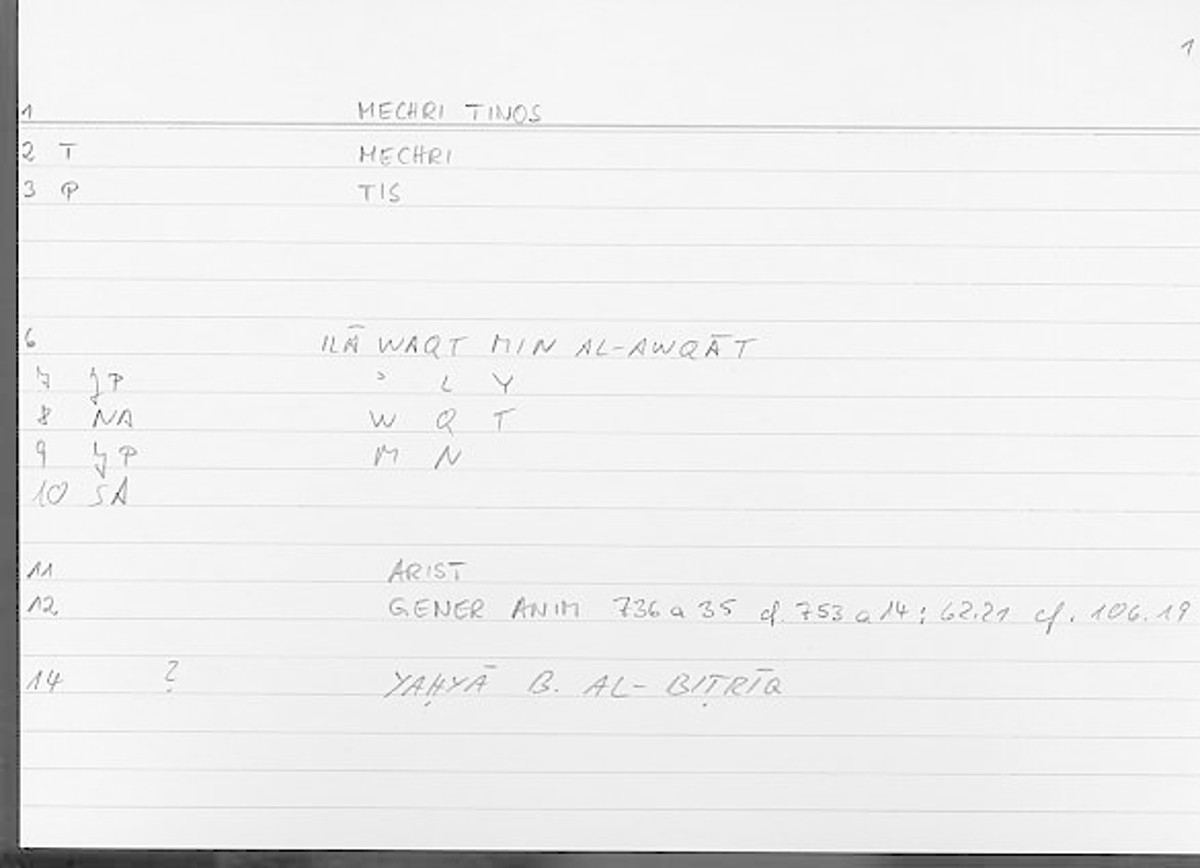 1
1 MECHRI TINOS
2 T MECHRI
3 P TIS
6 ILĀ WAQT MIN AL-AWQĀT
7 JP ʾ L Y
8 NA W Q T
9 JP M N
10 SA
11 ARIST
12 GENER ANIM 736 a 35 cf. 753 a 14; 62.21 cf. 106.19
14 ? YAḤYĀ B. AL-BIṬRĪQ